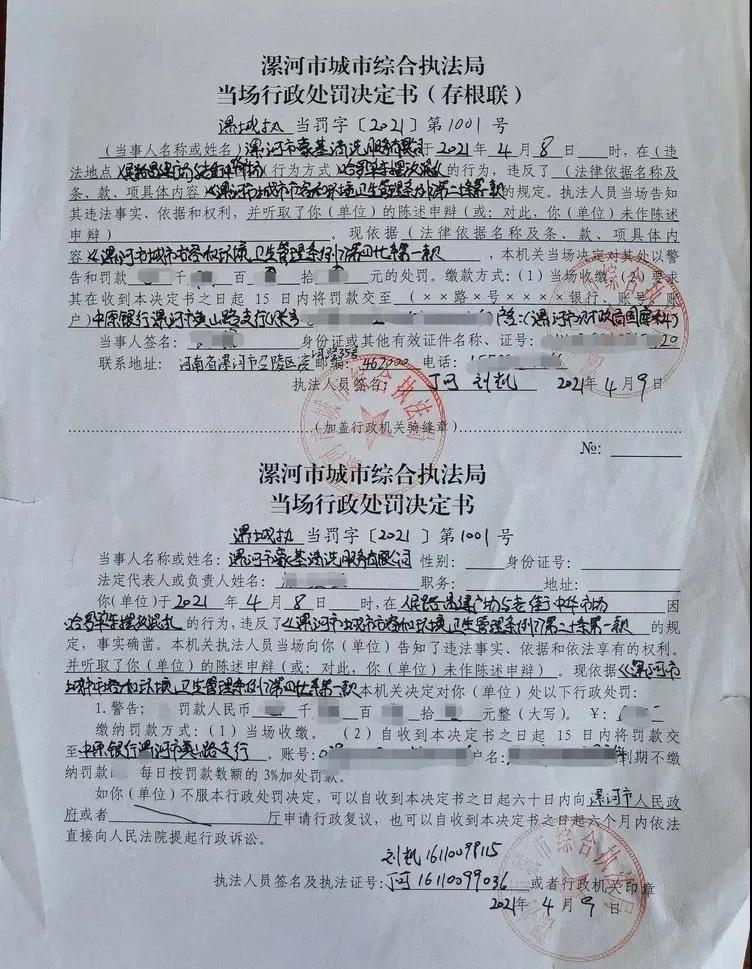 漯河市城市综合执法局
当场行政处罚决定书（存根联）
漯城执 当罚字〔2021〕第1001号
（当事人名称或姓名）漯河市豪基清洗服务有限公司于2021年4月8日 时，在（违
法地点）人民路昌建广场与老街中华市场（行为方式）哈罗单车摆放混乱的行为，违反了（法律依据名称及
条、款、项具体内容）《漯河市城市市容和环境卫生管理条例》第二十条第一款的规定。执法人员当场告知
其违法事实、依据和权利，并听取了你（单位）的陈述申辩（或：对此，你（单位）未作陈述
申辩）。现依据（法律依据名称及条、款、项具体内
容）《漯河市城市市容和环境卫生管理条例》第四十条第一款，本机关当场决定对其处以警
告和罚款 千 百 拾 元的处罚。缴款方式：（1）当场收缴（2）要求
其在收到本决定书之日起 15 日内将罚款交至（××路×号××××银行、账号、账
户）中原银行漯河市黄山路支行（漯河市财政局国库
当事人签名： 身份证或其他有效证件名称、证号： 20
联系地址：河南省漯河市召陵区 邮编：462000 电话：
执法人员签名：丁珂 刘凯 2021年4月9日
（加盖行政机关骑缝章）
№：
漯河市城市综合执法局
当场行政处罚决定书
漯城执 当罚字〔2021〕第1001号
当事人名称或姓名：漯河市豪基清洗服务有限公司 性别： 身份证号：
法定代表人或负责人姓名： 职务： 地址：
你（单位）于2021年4月8日 时，在人民路昌建广场与老街中华市场 因
哈罗单车摆放混乱的行为，违反了《漯河市城市市容和环境卫生管理条例》第二十条第一款的规
定，事实确凿。本机关执法人员当场向你（单位）告知了违法事实、依据和依法享有的权利。
并听取了你（单位）的陈述申辩（或：对此，你（单位）未作陈述申辩）。现依据《漯河市
城市市容和环境卫生管理条例》第四十条第一款本机关决定对你（单位）处以下行政处罚：
1.警告； 罚款人民币 千 百 拾 元整（大写）。￥：
缴纳罚款方式：（1）当场收缴。（2）自收到本决定书之日起 15 日内将罚款交
至中原银行漯河市黄山路支行。账号： 户名： 到期不缴
纳罚款 每日按罚款数额的 3%加处罚款。
如你（单位）不服本行政处罚决定，可以自收到本决定书之日起六十日内向漯河市人民政
府或者 厅申请行政复议，也可以自收到本决定书之日起六个月内依法
直接向人民法院提起行政诉讼。
刘凯 16110098115
执法人员签名及执法证号：丁珂 16110099036 或者行政机关印章
2021年4月9日